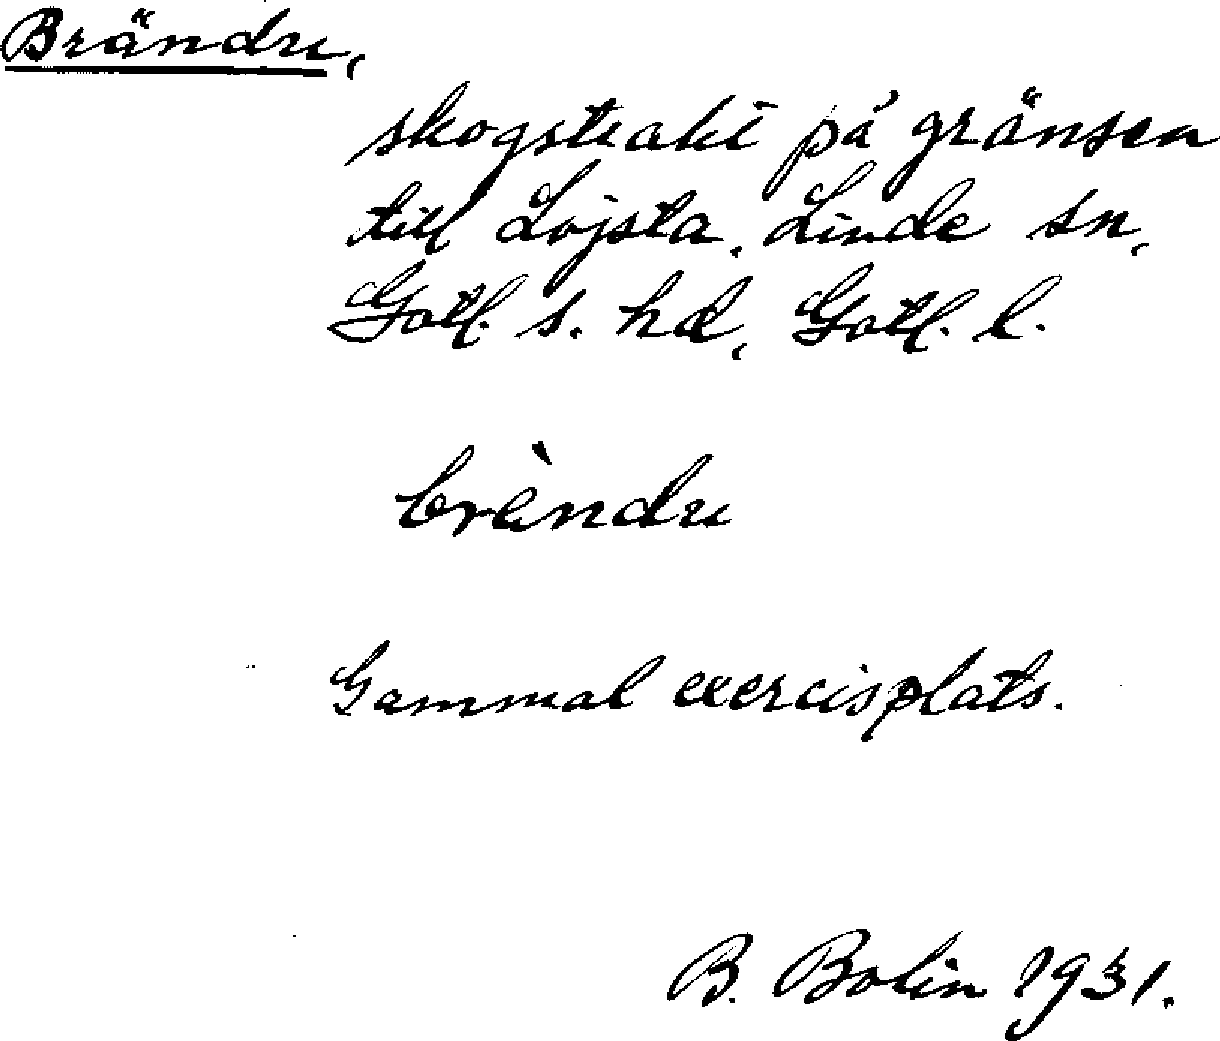 Brändu,
skogstrakt på gränsen
till Lojsta, Linde sn,
Gotl. s. hd, Gotl. l.
brèndu
Gammal exercisplats.
B. Bolin 1931.